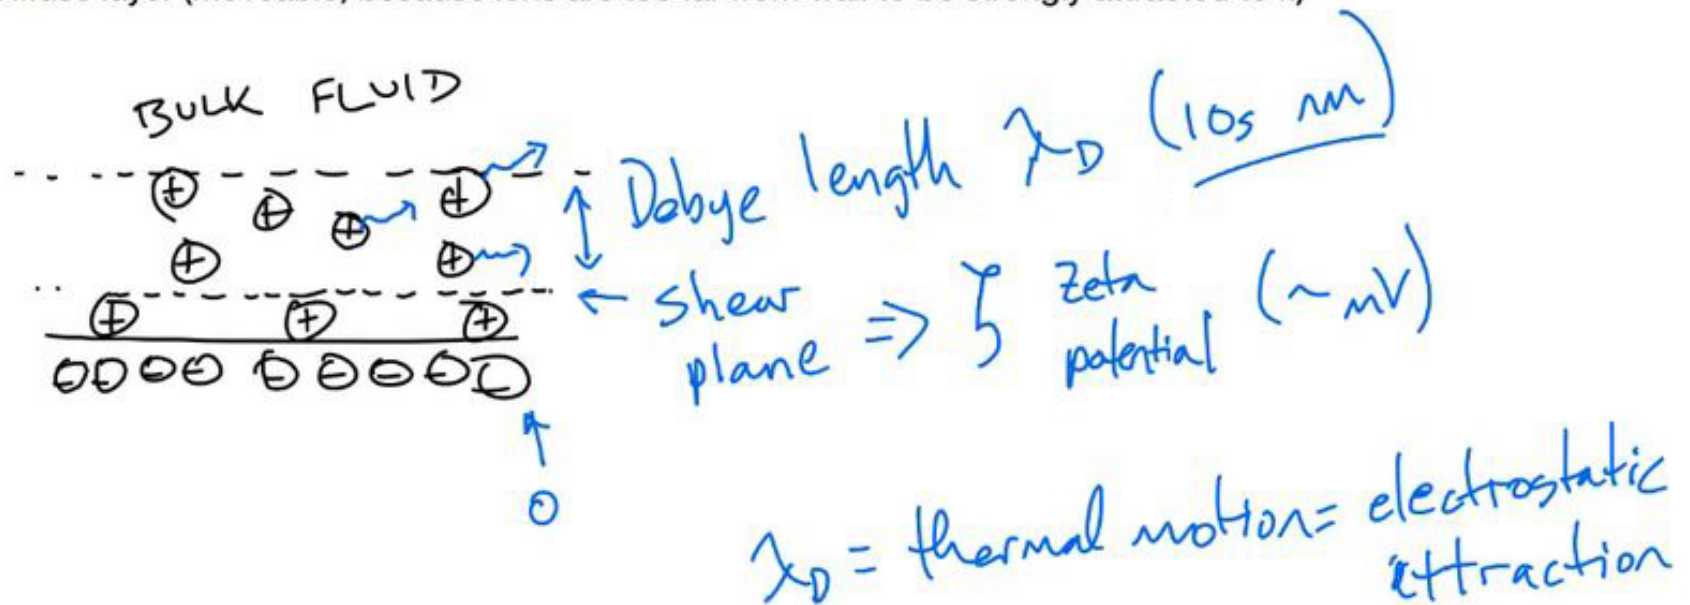 BULK FLUID
Debye length λD (10s nm)
← shear plane ⇒ ζ zeta potential (~mV)
0
λD = thermal motion = electrostatic attraction